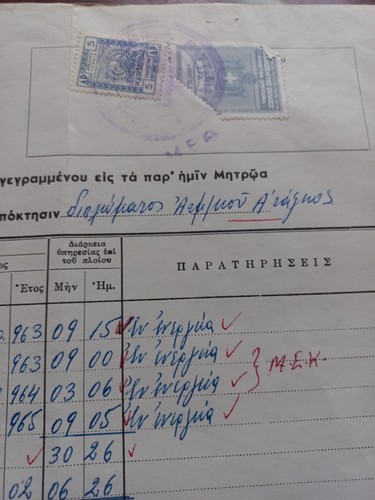 5 ΔΡ 5
ΜΕΡ
γεγραμμένου εἰς τὰ παρ' ἡμῖν Μητρῷα
πόκτησιν διπλώματος Λεμβούχου Α' τάξεως
Διάρκεια
ὑπηρεσίας ἐπὶ
τοῦ πλοίου
ΠΑΡΑΤΗΡΗΣΕΙΣ
ος Ἔτος Μὴν Ἡμ.
963 09 15 Ἐν ἐνεργείᾳ
963 09 00 Ἐν ἐνεργείᾳ
964 03 06 Ἐν ἐνεργείᾳ } Μ.Ε.Κ.
965 09 05 Ἐν ἐνεργείᾳ
30 26
02 06 26